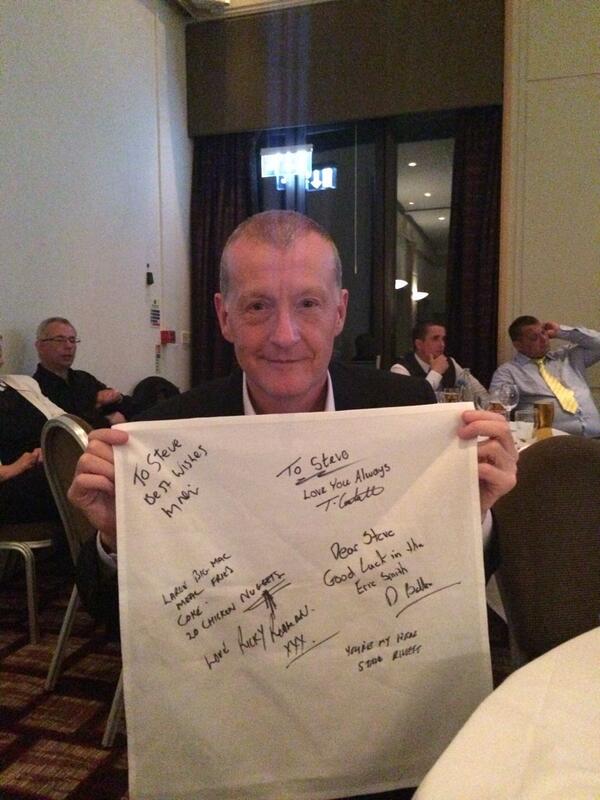 To Steve
Best Wishes
To Steve
Love You Always
Dear Steve
Good Luck in the
Eric Smith
D
LARGE BIG MAC
MEAL FRIES
COKE.
20 CHICKEN NUGGETS
LOVE RICKY
XXX.
YOU'RE MY HERO
STEVE